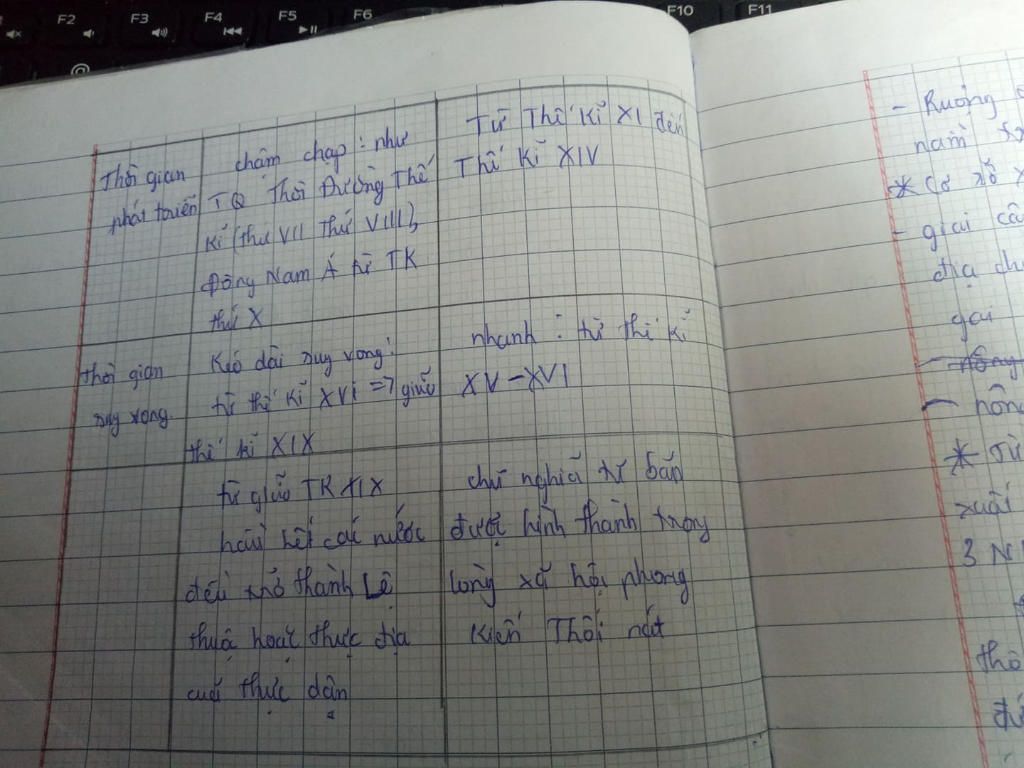 F2
F3
F4
F5
F6
F10
F11
Thời gian
phát triển
chậm chạp: như
TQ Thời Đường Thế
Kỉ (thứ VII Thứ VIII),
Đông Nam Á từ TK
thứ X
Từ Thế Kỉ XI đến
Thế Kỉ XIV
Thời gian
suy vong
Kéo dài suy vong:
từ thế kỉ XVI => giữa
thế kỉ XIX
nhanh: từ thế kỉ
XV-XVI
từ giữa TK XIX
hầu hết các nước
đều trở thành Lệ
thuộc hoặt thực địa
cuả thực dận
chủ nghĩa tư bản
được hình thành trong
lòng xã hội phong
Kiến Thối nát
- Ruộng
nam
* Cơ sở x
- giai câ
địa ch
gai
- nông
* Từ
xuất
3 N
thô